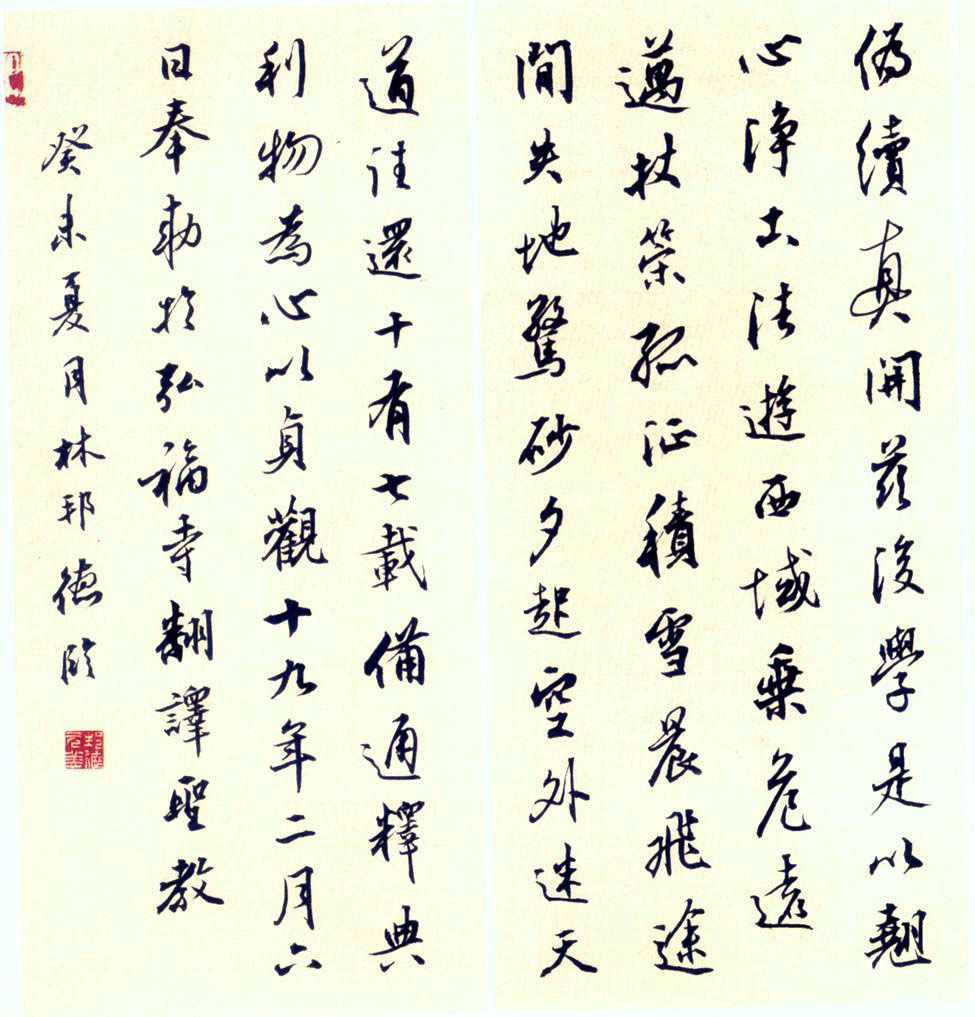 偽續真開茲後學是以翹
心淨土法遊西域乘危遠
邁杖策孤征積雪晨飛途
間失地驚砂夕起空外迷天
道往還十有七載備通釋典
利物為心以貞觀十九年二月六
日奉勅於弘福寺翻譯聖教
癸未夏月林邦德臨